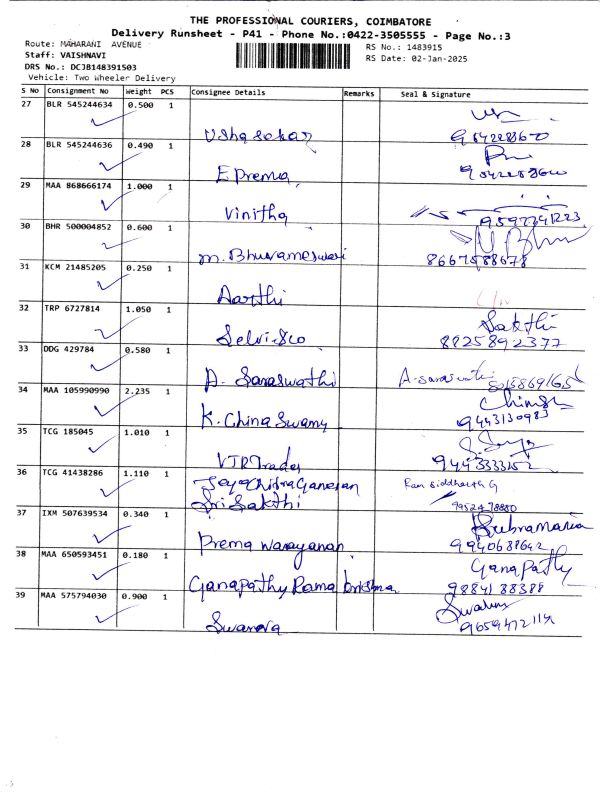 THE PROFESSIONAL COURIERS, COIMBATORE
Delivery Runsheet - P41 - Phone No.:0422-3505555 - Page No.:3
Route: MAHARANI AVENUE
RS No.: 1483915
Staff: VAISHNAVI
RS Date: 02-Jan-2025
DRS No.: DCJB148391503
Vehicle: Two Wheeler Delivery
S No Consignment No Weight PCS Consignee Details Remarks Seal & Signature
27 BLR 545244634 0.500 1
Ushasekar 9842288670
28 BLR 545244636 0.490 1
E Prema
29 MAA 868666174 1.000 1
Vinitha 9597241223
30 BHR 500004852 0.600 1
M. Bhuvameswari 8667588678
31 KCM 21485205 0.250 1
Aarthi
32 TRP 6727814 1.050 1
Sakthi
Selvi Sco 8825892377
33 DDG 429784 0.580 1
A. Saraswathi A-saraswathi
34 MAA 105990990 2.235 1
K. China Swamy 9443130983
35 TCG 185045 1.010 1
VTR Trades 9443333152
36 TCG 41438286 1.110 1
Jeya Chitra Ganesan Ram Siddharth G
Sri Sakthi 9952478880
37 IXM 507639534 0.340 1
Subramania
Prema Narayanan 9940688642
38 MAA 650593451 0.180 1
Ganapathy
Ganapathy Rama krishna 9884188388
39 MAA 575794030 0.900 1
Swarna